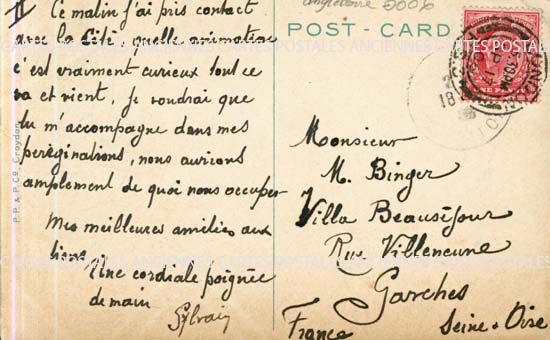 II Ce matin j'ai pris contact
avec la Cité, quelle animation
c'est vraiment curieux tout ce
va et vient, Je voudrai que
tu m'accompagne dans mes
pérégrinations, nous aurions
amplement de quoi nous occuper
Mes meilleures amitiés aux
tiens
Une cordiale poignée
de main
Sylvain
5006
POST - CARD
ONE PENNY
LONDON
18
Monsieur
M. Binger
Villa Beauséjour
Rue Villeneuve
Garches
Seine & Oise
France
P. P. & P. Co., Croydon
CARTES POSTALES ANCIENNES CARTES POSTALES
CARTES POSTALES ANCIENNES CARTES POSTALES